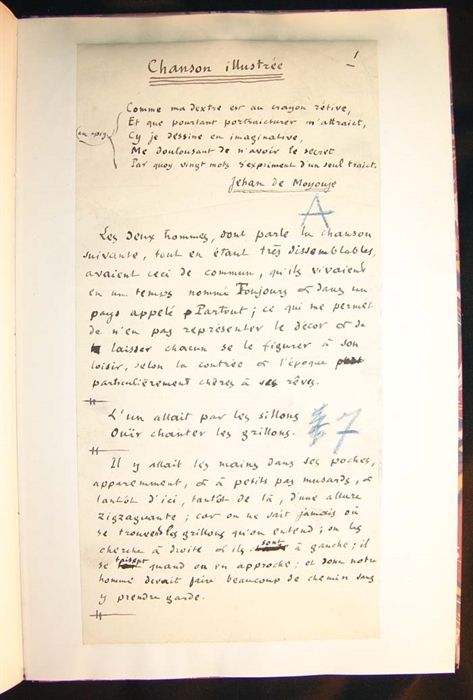 1
Chanson illustrée
Comme ma dextre est au crayon rétive,
Et que pourtant portraicturer m'attraict,
en épig.
Cy je dessine en imaginative,
Me doulousant de n'avoir le secret
Par quoy vingt mots s'expriment d'un seul traict.
Jehan de
A
Les deux hommes, dont parle la chanson
suivante, tout en étant très dissemblables,
avaient ceci de commun, qu'ils vivaient
en un temps nommé Toujours & dans un
pays appelé Partout; ce qui me permet
de n'en pas représenter le décor & de
laisser chacun se le figurer à son
loisir, selon la contrée & l'époque
particulièrement chères à ses rêves.
L'un allait par les sillons
Ouïr chanter les grillons.
7
Il y allait les mains dans ses poches,
apparemment, & à petits pas musards, &
tantôt d'ici, tantôt de là, d'une allure
zigzaguante; car on ne sait jamais où
se trouvent les grillons qu'on entend; on les
cherche à droite & ils sont à gauche; il
se taisent quand on en approche; et donc notre
homme devait faire beaucoup de chemin sans
y prendre garde.